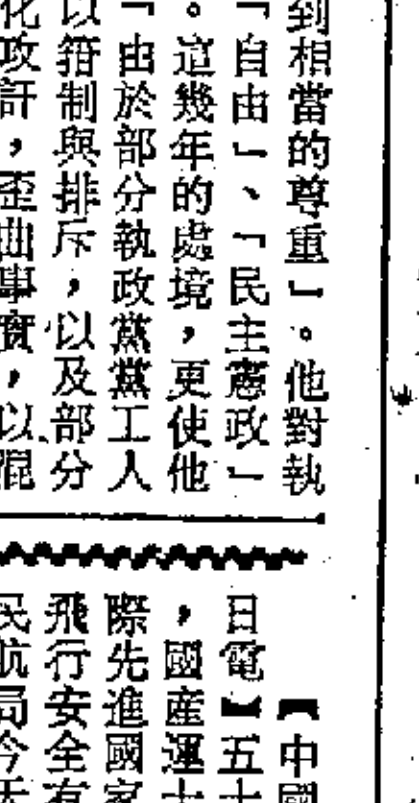 到相當的尊重」。他對執
「自由」、「民主憲政」
。這幾年的處境,更使他
「由於部分執政黨黨工人
以箝制與排斥,以及部分
化攻訐,歪曲事實,以混
【中國
日電】五十
,國産運士
際先進國家
飛行安全有
民航局今天